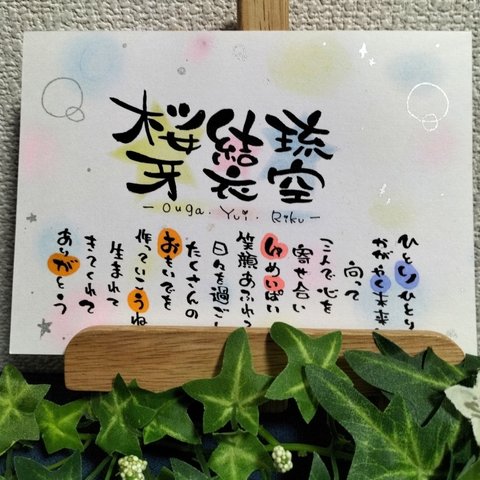 桜牙
結衣
琉空
- Ouga. Yui. Riku -
ひとりひとり
かがやく未来
向って
三人で心を
寄せ合い
ゆめいっぱい
笑顔あふれ
日々を過ごし
たくさんの
おもいでを
作っていこうね
生まれて
きてくれて
ありがとう